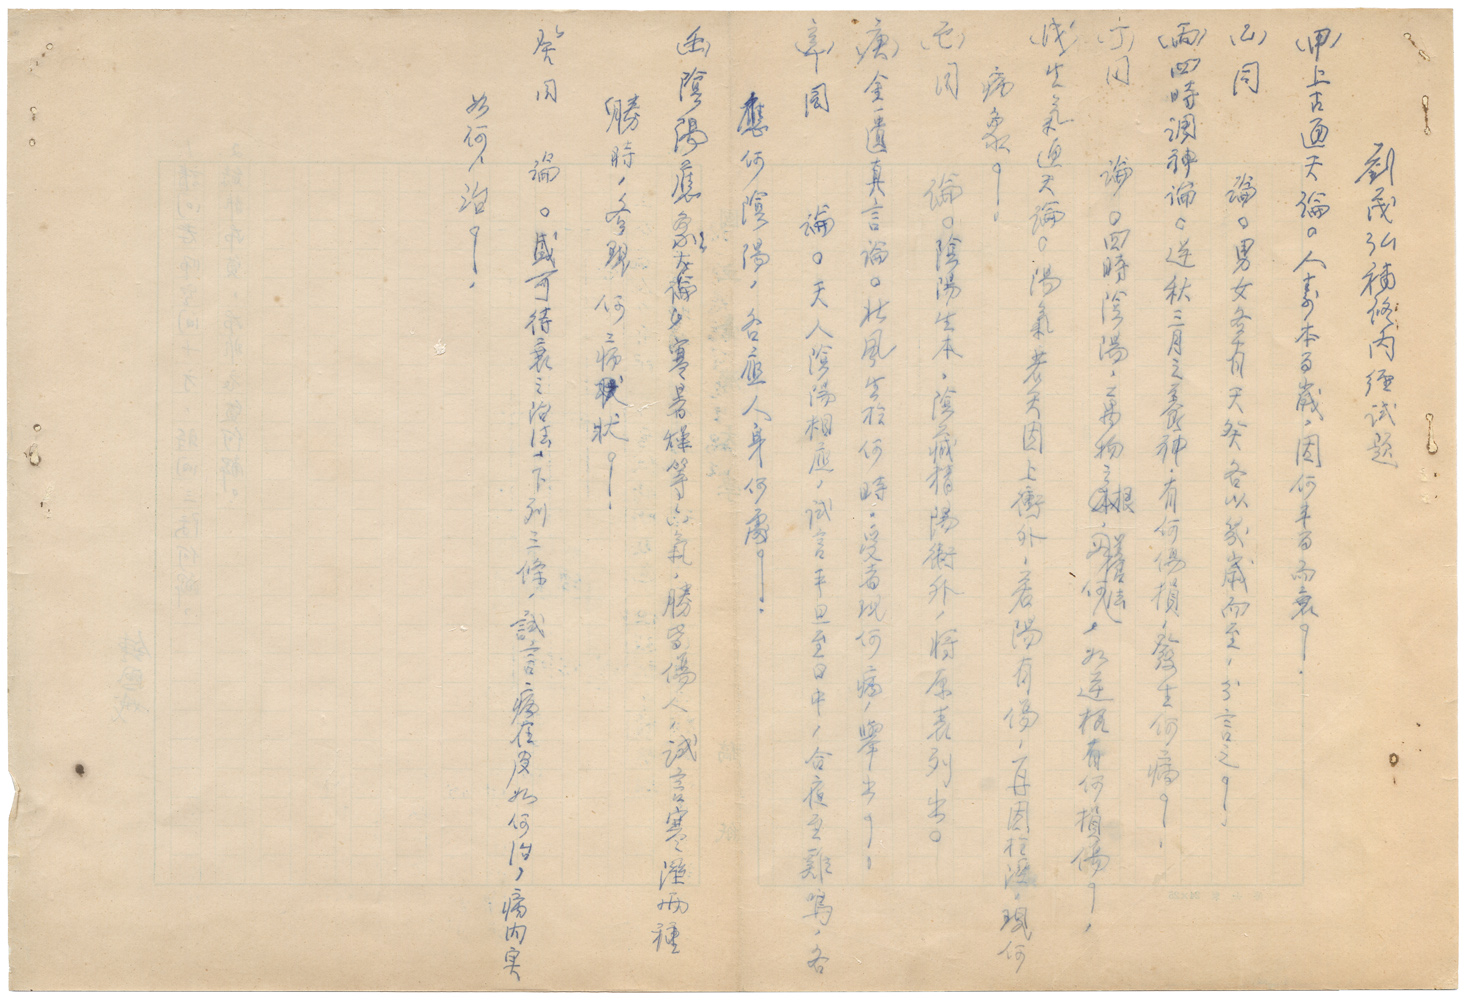 劉茂弘補修內經試題
(甲)上古通天論。人壽本百歲，因何半百而衰？
(乙)同　　論。男女各有天癸各以幾歲而至，分言之？
(丙)四時調神論。逆秋三月之養神，有何傷損，發生何病？
(丁)同　　論。四時陰陽，萬物之根，如逆根有何損傷？
(戊)生氣通天論。陽氣若天因上衛外，若陽有傷，再因於濕，現何
病象？
(己)同　　論。陰陽生本，陰藏精陽衛外，將原表列出。
(庚)金匱真言論。壯風生於何時，受者現何病，舉出？
(辛)同　　論。天人陰陽相應，試言平旦至日中，合夜至雞鳴，各
應何陰陽，各應人身何處？
(壬)陰陽應象大論。寒暑燥等六氣，勝者傷人，試言寒溼兩種
勝時，各現何病狀？
癸同　　論。盛可待衰之治法，下列三條，試言病在皮如何治，病內實
如何治？